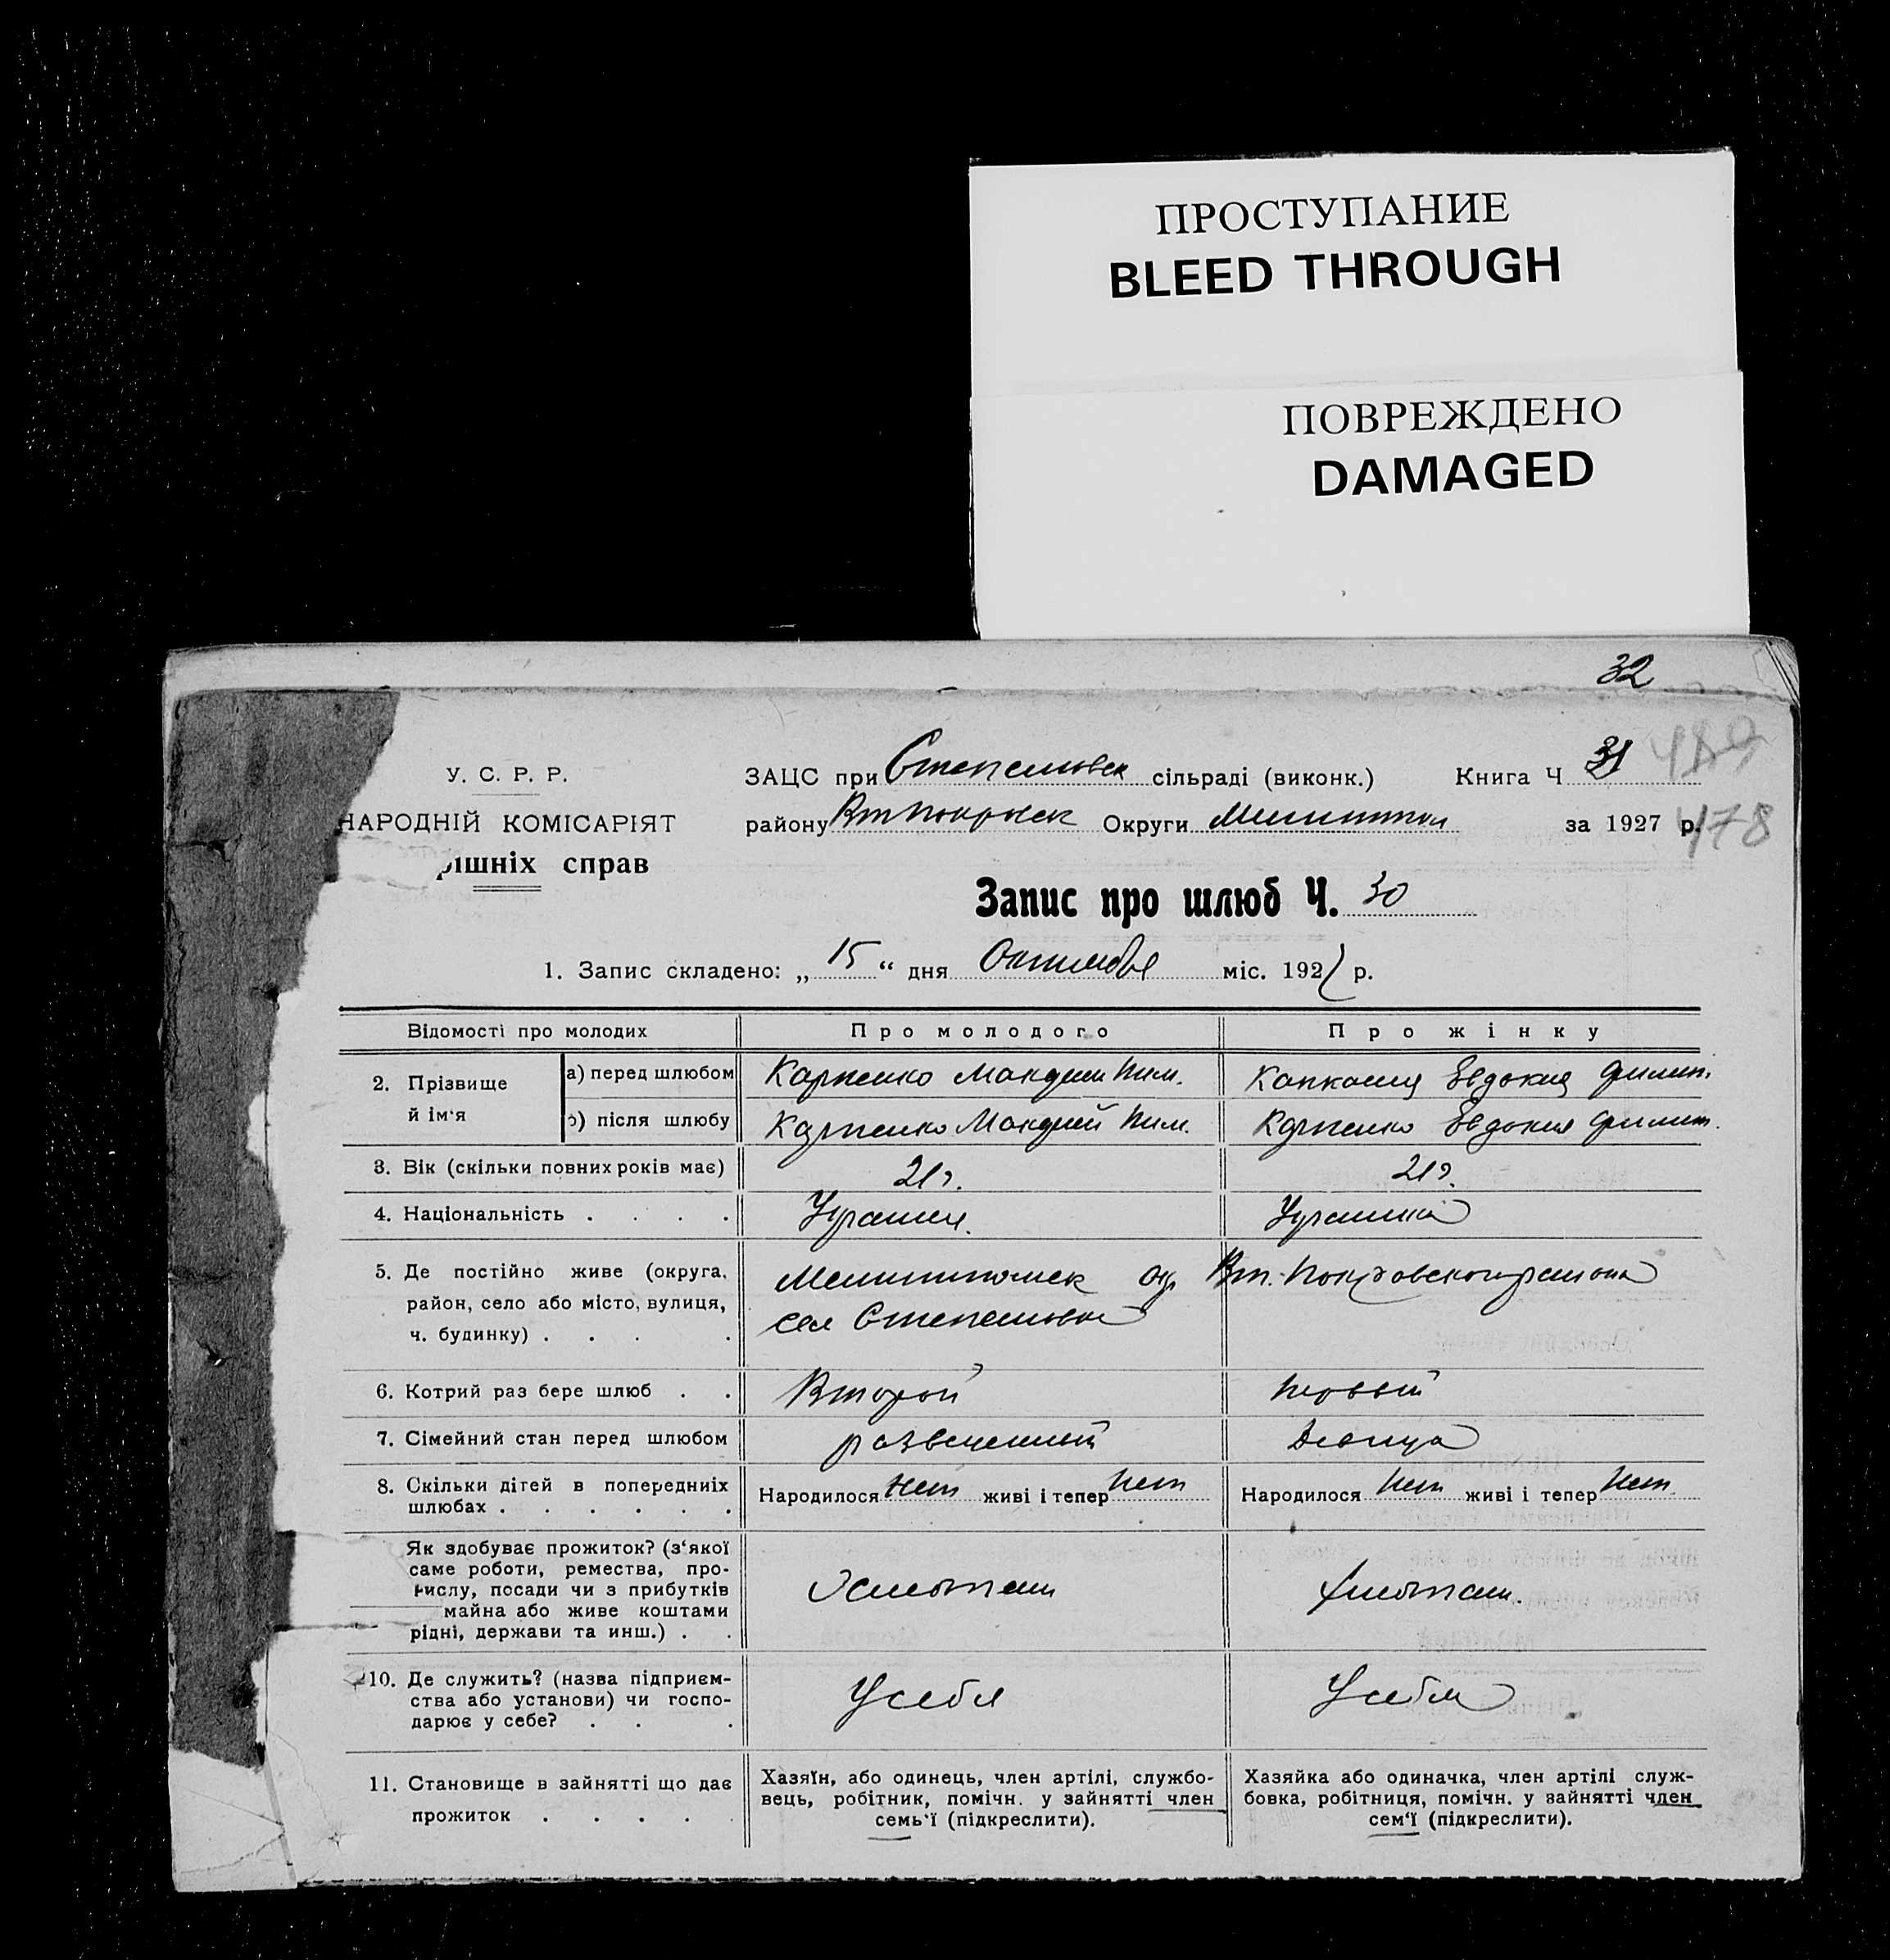 ПРОСТУПАНИЕ
BLEED THROUGH
ПОВРЕЖДЕНО
DAMAGED
32
У. С. Р. Р.
ЗАЦС при Степановск сільраді (виконк.) Книга Ч 31
НАРОДНІЙ КОМІСАРІЯТ
району Вт Покровск Округи Мелитопол за 1927 р. 478
рішніх справ
Запис про шлюб Ч. 30
1. Запис складено: „ 15 “ дня Октября міс. 1927 р.
Відомості про молодих Про молодого Про жінку
2. Прізвище й ім‘я
а) перед шлюбом Карпенко Пим. Евдокия Филип.
б) після шлюбу Карпенко Пим. Карпенко Евдокия Филип.
3. Вік (скільки повних років має) 21 г. 21 г.
4. Національність . . . . Украинец. Украинка
5. Де постійно живе (округа, Мелитопольск окр Вт.-Покровского района
район, село або місто, вулиця, сел Степановка
ч. будинку) . . . .
6. Котрий раз бере шлюб . . Второй Первый
7. Сімейний стан перед шлюбом разведенный Девица
8. Скільки дітей в попередніх Народилося Нет живі і тепер Нет Народилося Нет живі і тепер Нет.
шлюбах . . . . . .
Як здобуває прожиток? (з‘якої
саме роботи, ремества, про-
мислу, посади чи з прибутків Хлебопаш Хлебопаш.
майна або живе коштами
рідні, держави та инш.) . .
10. Де служить? (назва підприєм-
ства або установи) чи госпо- У себя У себя
дарює у себе? . . .
11. Становище в зайнятті що дає Хазяїн, або одинець, член артілі, службо- Хазяйка або одиначка, член артілі служ-
прожиток . . . . . вець, робітник, помічн. у зайнятті член бовка, робітниця, помічн. у зайнятті член
семь‘ї (підкреслити). сем‘ї (підкреслити).